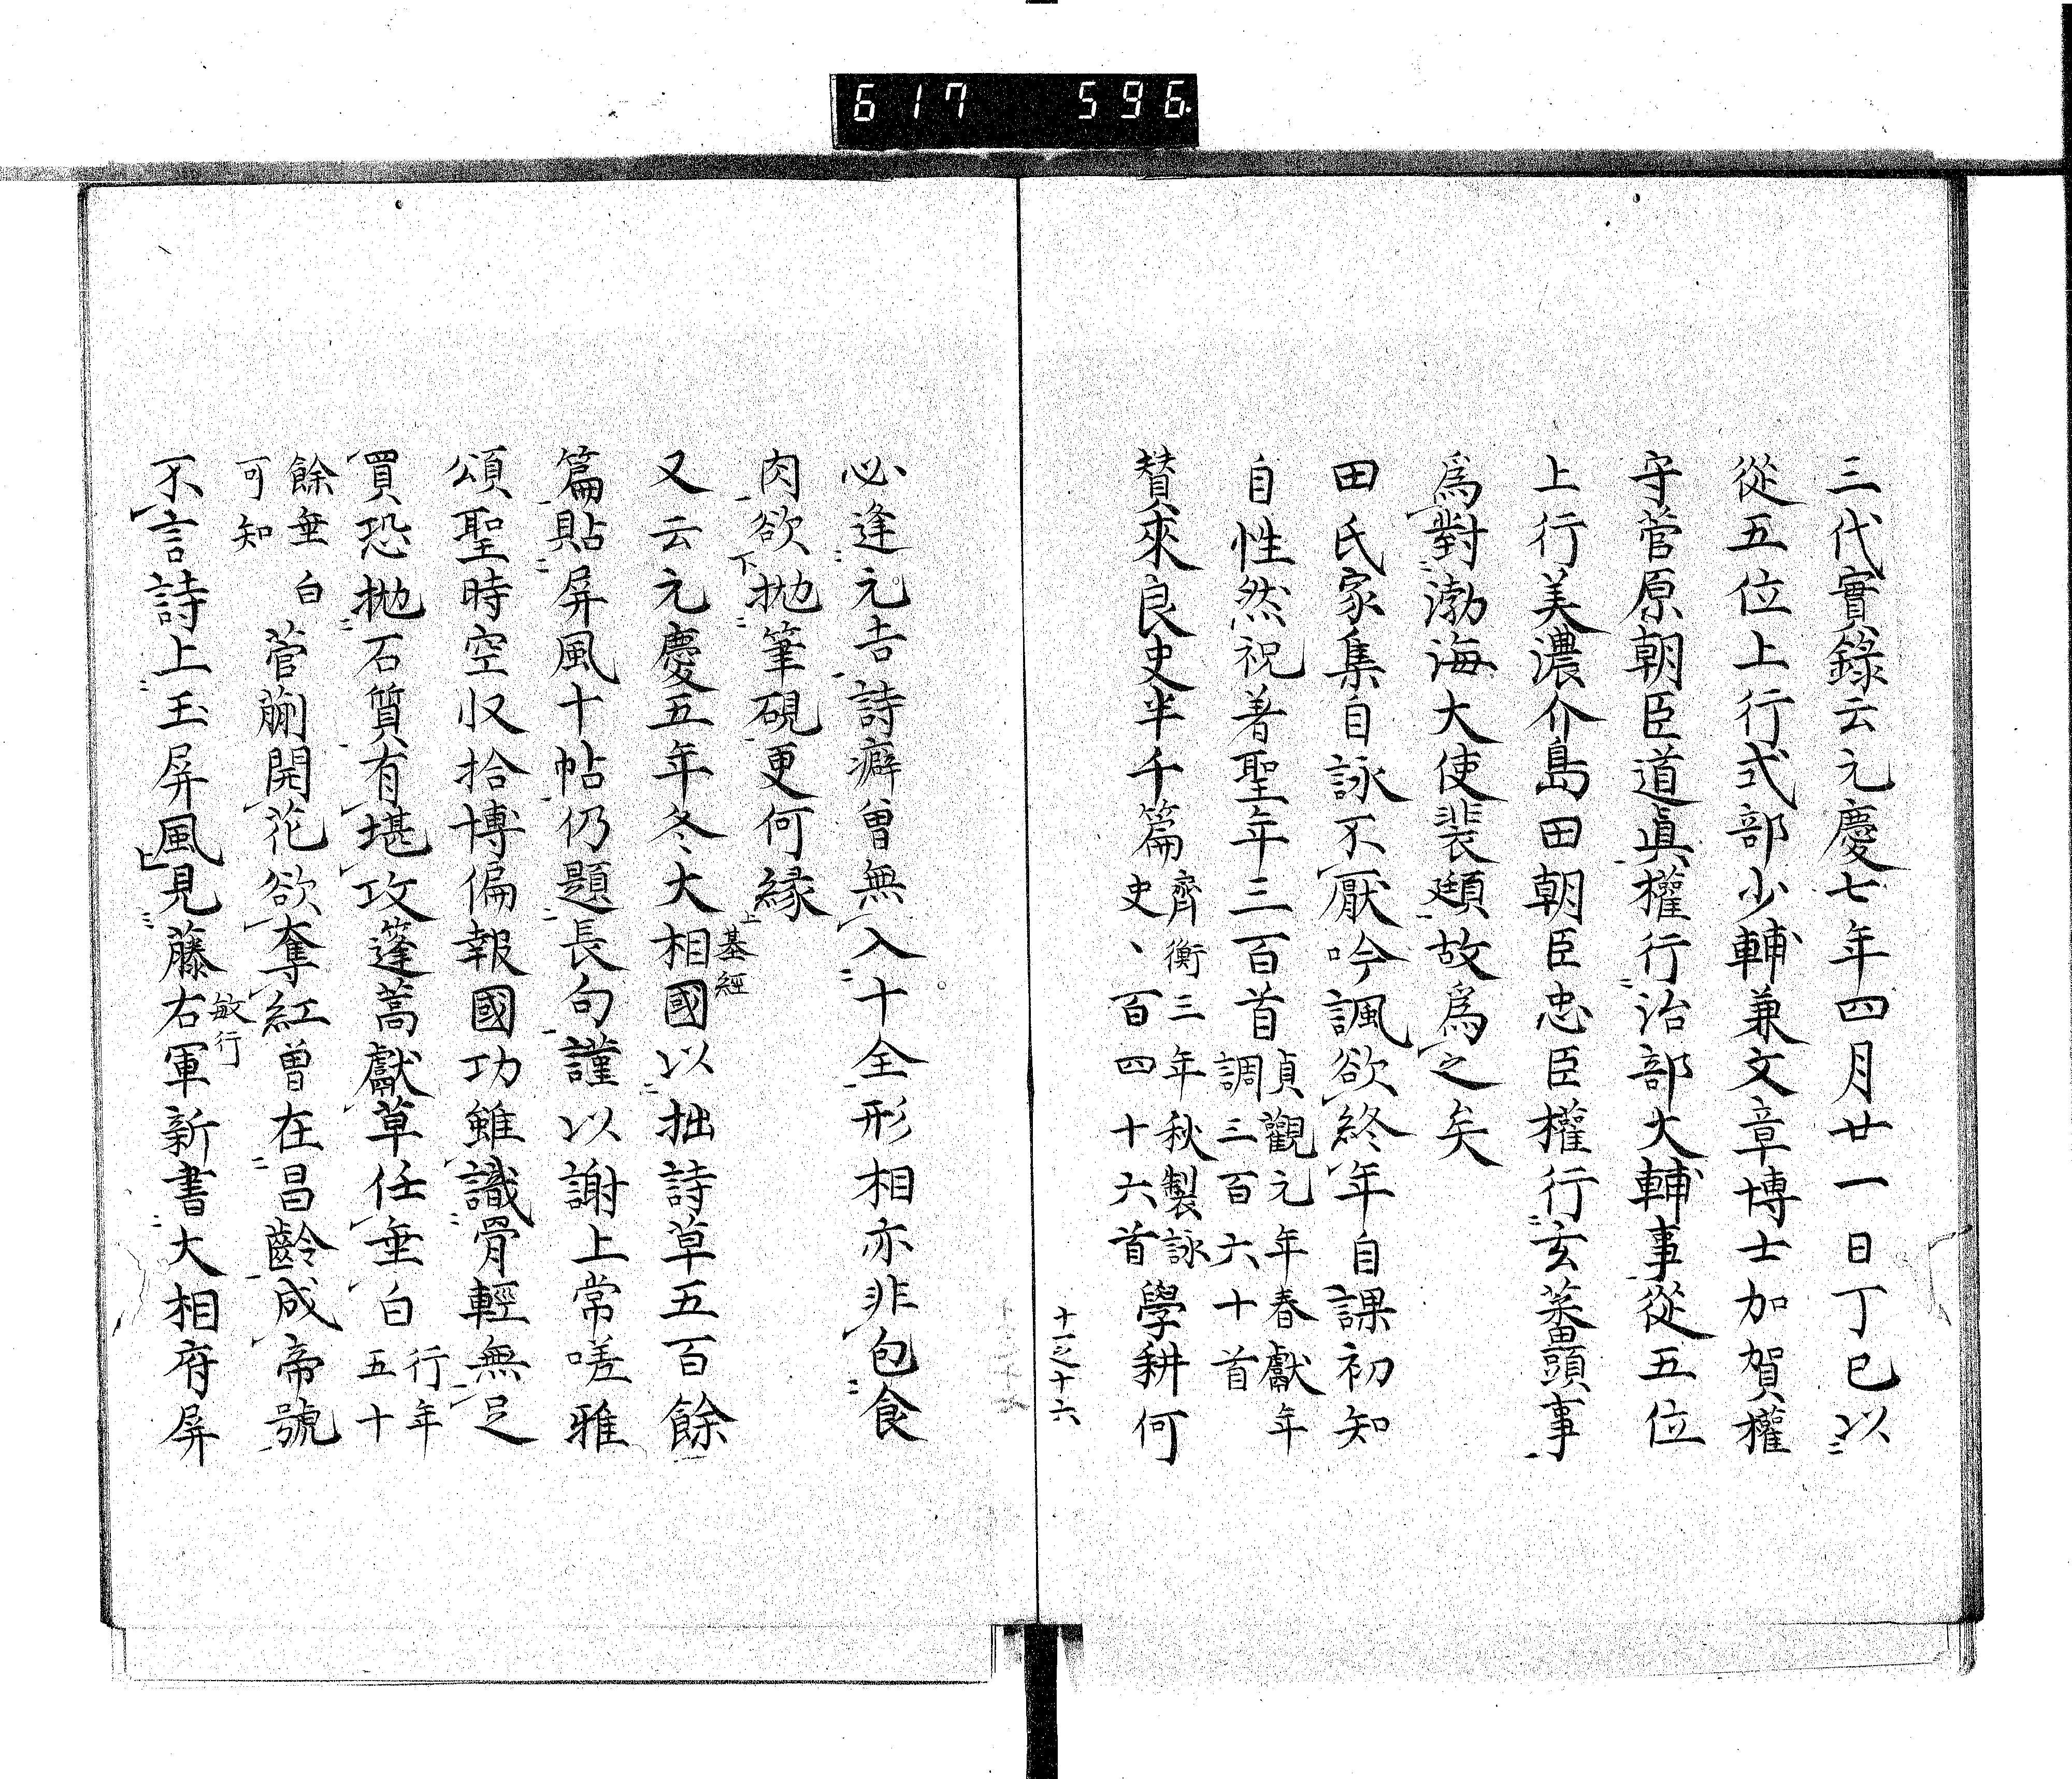 617 596
三代實錄云元慶七年四月廿一日丁巳以
從五位上行式部少輔兼文章博士加賀權
守菅原朝臣道眞權行治部大輔事從五位
上行美濃介島田朝臣忠臣權行玄蕃頭事
爲對渤海大使裴頲故爲之矣
田氏家集自詠不厭吟諷欲終年自課初知
自性然祝著聖年三百首貞觀元年春獻年調三百六十首
賛來良史半千篇齊衡三年秋製詠史、百四十六首學耕何
十一之十六
必逢元吉詩癖曽無入十全形相亦非包食
肉欲拋筆硯更何緣
又云元慶五年冬大相國基經以拙詩草五百餘
篇貼屏風十帖仍題長句謹以謝上常嗟雅
頌聖時空收拾博偏報國功雖識骨輕無足
買恐拋石質有堪攻蓬蒿獻草任垂白行年五十
餘垂白可知菅蒯開花欲奪紅曽在昌齡成帝號
不言詩上玉屏風見藤右軍敏行新書大相府屏